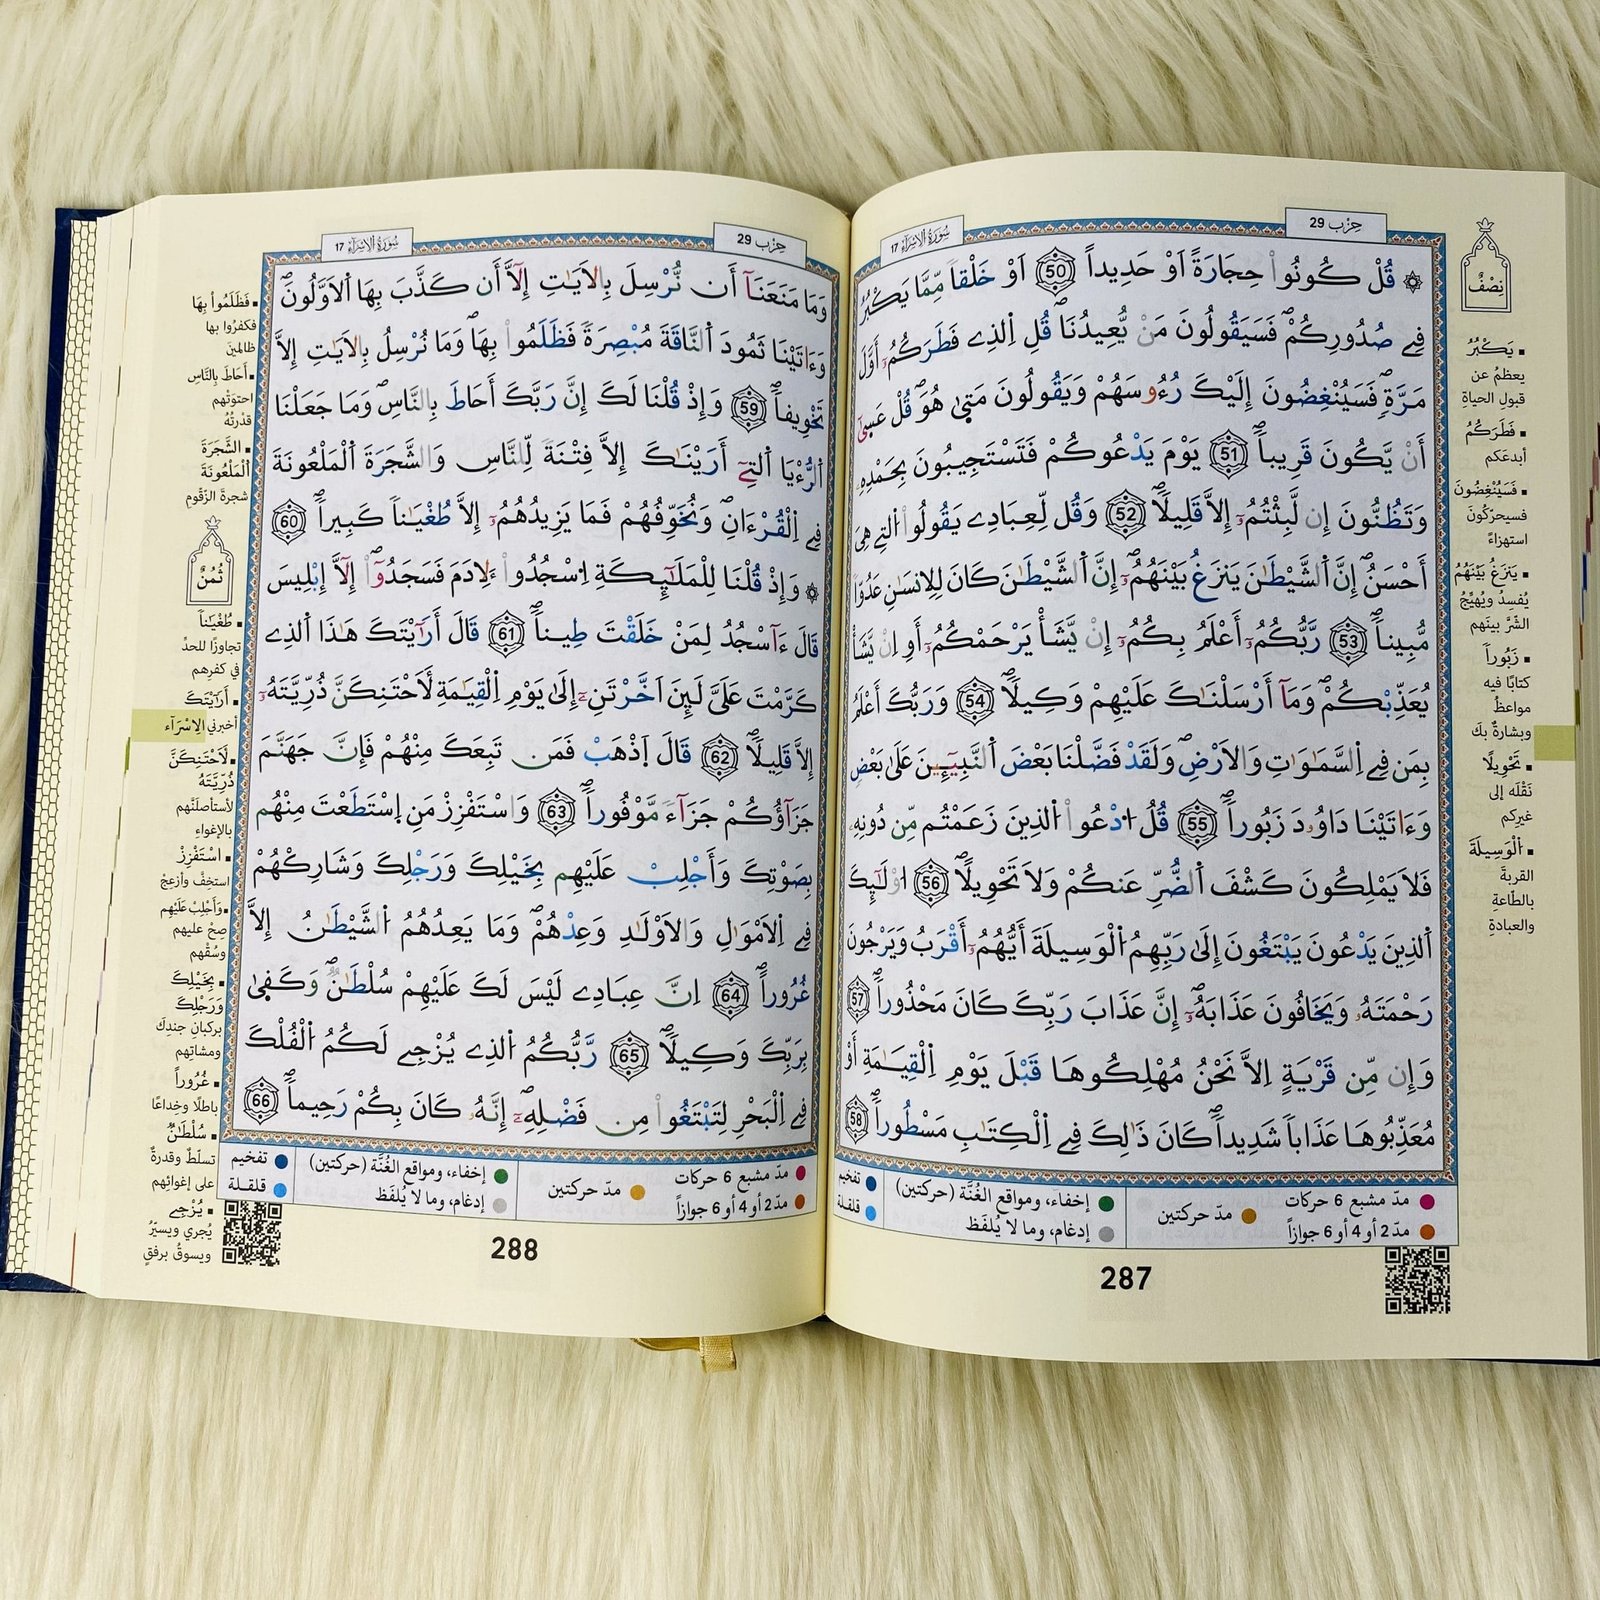 سُورَةُ الِاسْرَآءِ 17
حِزْب 29
نِصْفٌ
۞ قُلْ كُونُواْ حِجَارَةً اَوْ حَدِيداً 50 اَوْ خَلْقاً مِّمَّا يَكْبُرُ
فِے صُدُورِكُمْۖ فَسَيَقُولُونَ مَنْ يُّعِيدُنَاۖ قُلِ اِ۬لذِے فَطَرَكُمُۥٓ أَوَّلَ
مَرَّةٖۖ فَسَيُنْغِضُونَ إِلَيْكَ رُءُوسَهُمْ وَيَقُولُونَ مَتَىٰ هُوَۖ قُلْ عَسَىٰٓ
أَنْ يَّكُونَ قَرِيباٗۖ 51 يَوْمَ يَدْعُوكُمْ فَتَسْتَجِيبُونَ بِحَمْدِهِۦ
وَتَظُنُّونَ إِن لَّبِثْتُمُۥٓ إِلَّا قَلِيلاٗۖ 52 وَقُل لِّعِبَادِے يَقُولُواْ اُ۬لتِے هِيَ
أَحْسَنُۖ إِنَّ اَ۬لشَّيْطَٰنَ يَنزَغُ بَيْنَهُمُۥٓۖ إِنَّ اَ۬لشَّيْطَٰنَ كَانَ لِلِانسَٰنِ عَدُوّاٗ
مُّبِيناٗۖ 53 رَّبُّكُمُۥٓ أَعْلَمُ بِكُمُۥٓ إِنْ يَّشَأْ يَرْحَمْكُمُۥٓ أَوِ اِنْ يَّشَأْ
يُعَذِّبْكُمْۖ وَمَآ أَرْسَلْنَٰكَ عَلَيْهِمْ وَكِيلاٗۖ 54 وَرَبُّكَ أَعْلَمُ
بِمَن فِے اِ۬لسَّمَٰوَٰتِ وَالَارْضِۖ وَلَقَدْ فَضَّلْنَا بَعْضَ اَ۬لنَّبِيٓـِٕينَ عَلَىٰ بَعْضٖ
وَءَاتَيْنَا دَاوُۥدَ زَبُوراٗۖ 55 قُلُ اُ۟دْعُواْ اُ۬لذِينَ زَعَمْتُم مِّن دُونِهِۦ
فَلَا يَمْلِكُونَ كَشْفَ اَ۬لضُّرِّ عَنكُمْ وَلَا تَحْوِيلاٗۖ 56 ا۟وْلَٰٓئِكَ
اَ۬لذِينَ يَدْعُونَ يَبْتَغُونَ إِلَىٰ رَبِّهِمُ اُ۬لْوَسِيلَةَ أَيُّهُمُۥٓ أَقْرَبُ وَيَرْجُونَ
رَحْمَتَهُۥ وَيَخَافُونَ عَذَابَهُۥٓۖ إِنَّ عَذَابَ رَبِّكَ كَانَ مَحْذُوراٗۖ 57
وَإِن مِّن قَرْيَةٍ اِلَّا نَحْنُ مُهْلِكُوهَا قَبْلَ يَوْمِ اِ۬لْقِيَٰمَةِ أَوْ
مُعَذِّبُوهَا عَذَاباٗ شَدِيداٗۖ كَانَ ذَٰلِكَ فِے اِ۬لْكِتَٰبِ مَسْطُوراٗۖ 58
▪ يَكْبُرُ
يعظمُ عن
قبولِ الحياةِ
▪ فَطَرَكُمُ
أبدعَكم
▪ فَسَيُنْغِضُونَ
فسيحرّكُونَ
استهزاءً
▪ يَنزَغُ بَيْنَهُمُ
يُفسِدُ ويُهيِّجُ
الشَّرَّ بينَهم
▪ زَبُوراً
كتابًا فيه
مواعظُ
وبشارةٌ بكَ
▪ تَحْوِيلًا
نَقْلَه إلى
غيركم
▪ اَلْوَسِيلَةَ
القربةَ
بالطّاعةِ
والعبادةِ
مدّ مشبع 6 حركات
مدّ 2 أو 4 أو 6 جوازاً
مدّ حركتين
إخفاء، ومواقع الغُنَّة (حركتين)
إدغام، وما لا يُلفَظ
تفخيم
قلقلة
287
سُورَةُ الِاسْرَآءِ 17
حِزْب 29
وَمَا مَنَعَنَآ أَن نُّرْسِلَ بِالَايَٰتِ إِلَّآ أَن كَذَّبَ بِهَا اَ۬لَاوَّلُونَۖ
وَءَاتَيْنَا ثَمُودَ اَ۬لنَّاقَةَ مُبْصِرَةٗ فَظَلَمُواْ بِهَاۖ وَمَا نُرْسِلُ بِالَايَٰتِ إِلَّا
تَخْوِيفاٗۖ 59 وَإِذْ قُلْنَا لَكَ إِنَّ رَبَّكَ أَحَاطَ بِالنَّاسِۖ وَمَا جَعَلْنَا
اَ۬لرُّءْيَا اَ۬لتِےٓ أَرَيْنَٰكَ إِلَّا فِتْنَةٗ لِّلنَّاسِ وَالشَّجَرَةَ اَ۬لْمَلْعُونَةَ
فِے اِ۬لْقُرْءَانِۖ وَنُخَوِّفُهُمْ فَمَا يَزِيدُهُمُۥٓ إِلَّا طُغْيَٰناٗ كَبِيراٗۖ 60
۞ وَإِذْ قُلْنَا لِلْمَلَٰٓئِكَةِ اِ۟سْجُدُواْ لِأٓدَمَ فَسَجَدُوٓاْۖ إِلَّآ إِبْلِيسَ
قَالَ ءَآسْجُدُ لِمَنْ خَلَقْتَ طِيناٗۖ 61 قَالَ أَرَٰٓيْتَكَ هَٰذَا اَ۬لذِے
كَرَّمْتَ عَلَيَّ لَئِنَ اَخَّرْتَنِۦٓ إِلَىٰ يَوْمِ اِ۬لْقِيَٰمَةِ لَأَحْتَنِكَنَّ ذُرِّيَّتَهُۥٓ
إِلَّا قَلِيلاٗۖ 62 قَالَ اَ۪ذْهَبْ فَمَن تَبِعَكَ مِنْهُمْ فَإِنَّ جَهَنَّمَ
جَزَآؤُكُمْ جَزَآءٗ مَّوْفُوراٗۖ 63 وَاسْتَفْزِزْ مَنِ اِ۪سْتَطَعْتَ مِنْهُم
بِصَوْتِكَ وَأَجْلِبْ عَلَيْهِم بِخَيْلِكَ وَرَجْلِكَ وَشَارِكْهُمْ
فِے اِ۬لَامْوَٰلِ وَالَاوْلَٰدِ وَعِدْهُمْۖ وَمَا يَعِدُهُمُ اُ۬لشَّيْطَٰنُ إِلَّا
غُرُوراًۖ 64 اِنَّ عِبَادِے لَيْسَ لَكَ عَلَيْهِمْ سُلْطَٰنٞۖ وَكَفَىٰ
بِرَبِّكَ وَكِيلاٗۖ 65 رَّبُّكُمُ اُ۬لذِے يُزْجِے لَكُمُ اُ۬لْفُلْكَ
فِے اِ۬لْبَحْرِ لِتَبْتَغُواْ مِن فَضْلِهِۦٓۖ إِنَّهُۥ كَانَ بِكُمْ رَحِيماٗۖ 66
▪ فَظَلَمُواْ بِهَا
فكفرُوا بها
ظالمِينَ
▪ أَحَاطَ بِالنَّاسِ
احتوَتْهم
قدرتُهُ
▪ الشَّجَرَةَ
اَلْمَلْعُونَةَ
شجرةَ الزّقومِ
ثُمُنٌ
▪ طُغْيَٰناً
تجاوزًا للحدِّ
في كفرهم
▪ أَرَٰيْتَكَ
أخبرني
الِاسْرَآء
▪ لَأَحْتَنِكَنَّ
ذُرِّيَّتَهُ
لأستأصلَنَّهم
بالإغواءِ
▪ اسْتَفْزِزْ
استخِفَّ وأزعِجْ
▪ وَأَجْلِبْ عَلَيْهِم
صِحْ عليهم
وسُقْهم
▪ بِخَيْلِكَ
وَرَجْلِكَ
بركبانِ جندِكَ
ومشاتِهم
▪ غُرُوراً
باطلًا وخِداعًا
▪ سُلْطَٰنٌ
تسلّطٌ وقدرةٌ
على إغوائِهم
▪ يُزْجِے
يُجري ويسيّرُ
ويسوقُ برفقٍ
مدّ مشبع 6 حركات
مدّ 2 أو 4 أو 6 جوازاً
مدّ حركتين
إخفاء، ومواقع الغُنَّة (حركتين)
إدغام، وما لا يُلفَظ
تفخيم
قلقلة
288